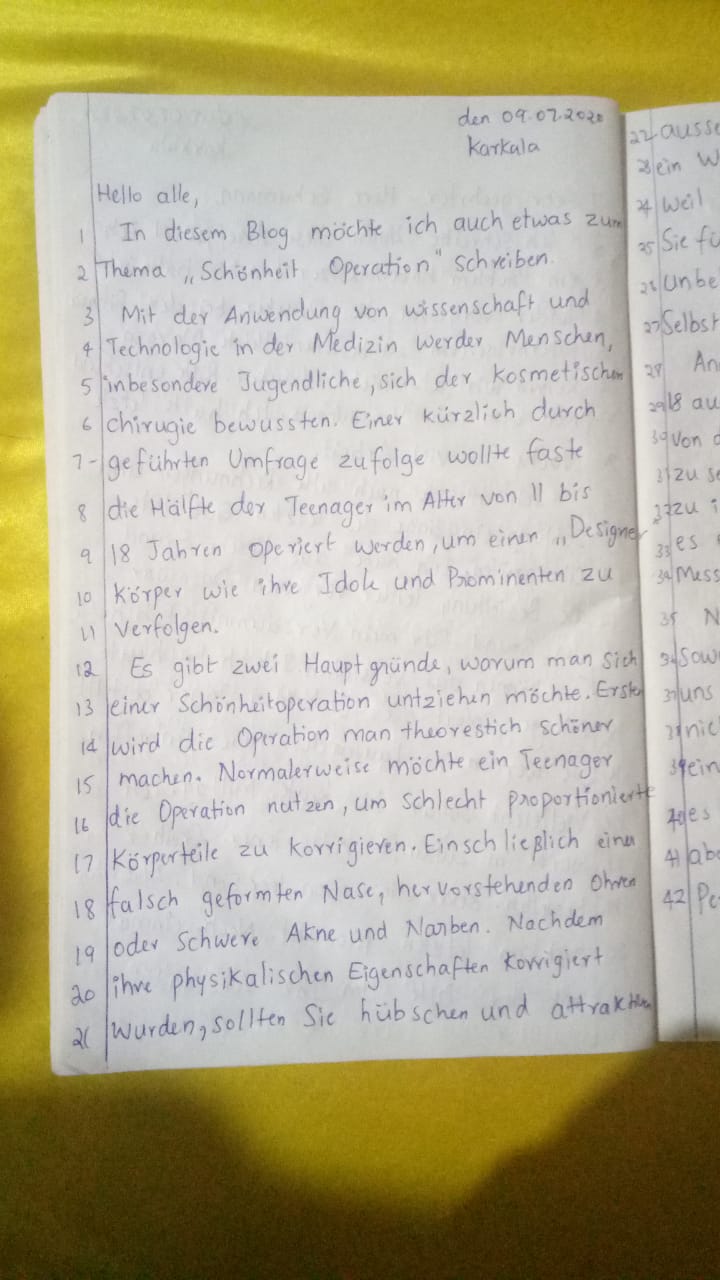 den 09.07.2020
Karkala
Hello alle,
1 In diesem Blog möchte ich auch etwas zum
2 Thema „Schönheit Operation" schreiben.
3 Mit der Anwendung von wissenschaft und
4 Technologie in der Medizin werder Menschen,
5 inbesondere Jugendliche, sich der kosmetischen
6 chirugie bewussten. Einer kürzlich durch
7 - geführten Umfrage zufolge wollte faste
8 die Hälfte der Teenager im Alter von 11 bis
9 18 Jahren operiert werden, um einen „Designer
10 Körper wie ihre Idole und Prominenten zu
11 Verfolgen.
12 Es gibt zwei Hauptgründe, worum man sich
13 einer Schönheitoperation untziehen möchte. Erste
14 wird die Operation man theorestich schöner
15 machen. Normalerweise möchte ein Teenager
16 die Operation nutzen, um schlecht proportionierte
17 Körperteile zu korrigieren. Einschließlich einer
18 falsch geformten Nase, hervorstehenden Ohren
19 oder Schwere Akne und Narben. Nachdem
20 ihre physikalischen Eigenschaften korrigiert
21 wurden, sollten Sie hübschen und
22 ausse
23 ein W
24 weil
25 Sie fü
26 Unbe
27 Selbst
28 An
29 18 au
30 von d
31 zu se
32 zu i
33 es
34 Mess
35 N
36 Sow
37 uns
38 nic
39 ein
40 es
41 abe
42 Pe